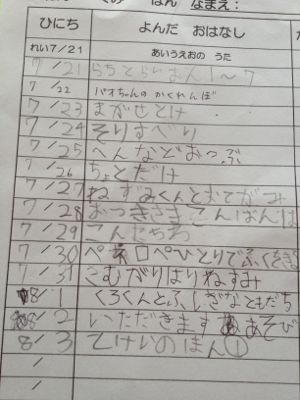 くみ ばん なまえ:
ひにち よんだ おはなし
れい7/21 あいうえおの うた
7/21 らちとらいおん1〜7
7/22 パオちゃんの かくれんぼ
7/23 まがせとけ
7/24 そりすべり
7/25 へんなどおっぶ
7/26 ちょとだけ
7/27 ねずみくんとおてがみ
7/28 おつきさまこんばんは
7/29 こんにちわ
7/30 ペネロペひとりでふくをき
7/31 さむがりはりねずみ
8/1 くろくんとふしぎなともだち
8/2 いただきますあそび
8/3 とけいのほん①
/
/